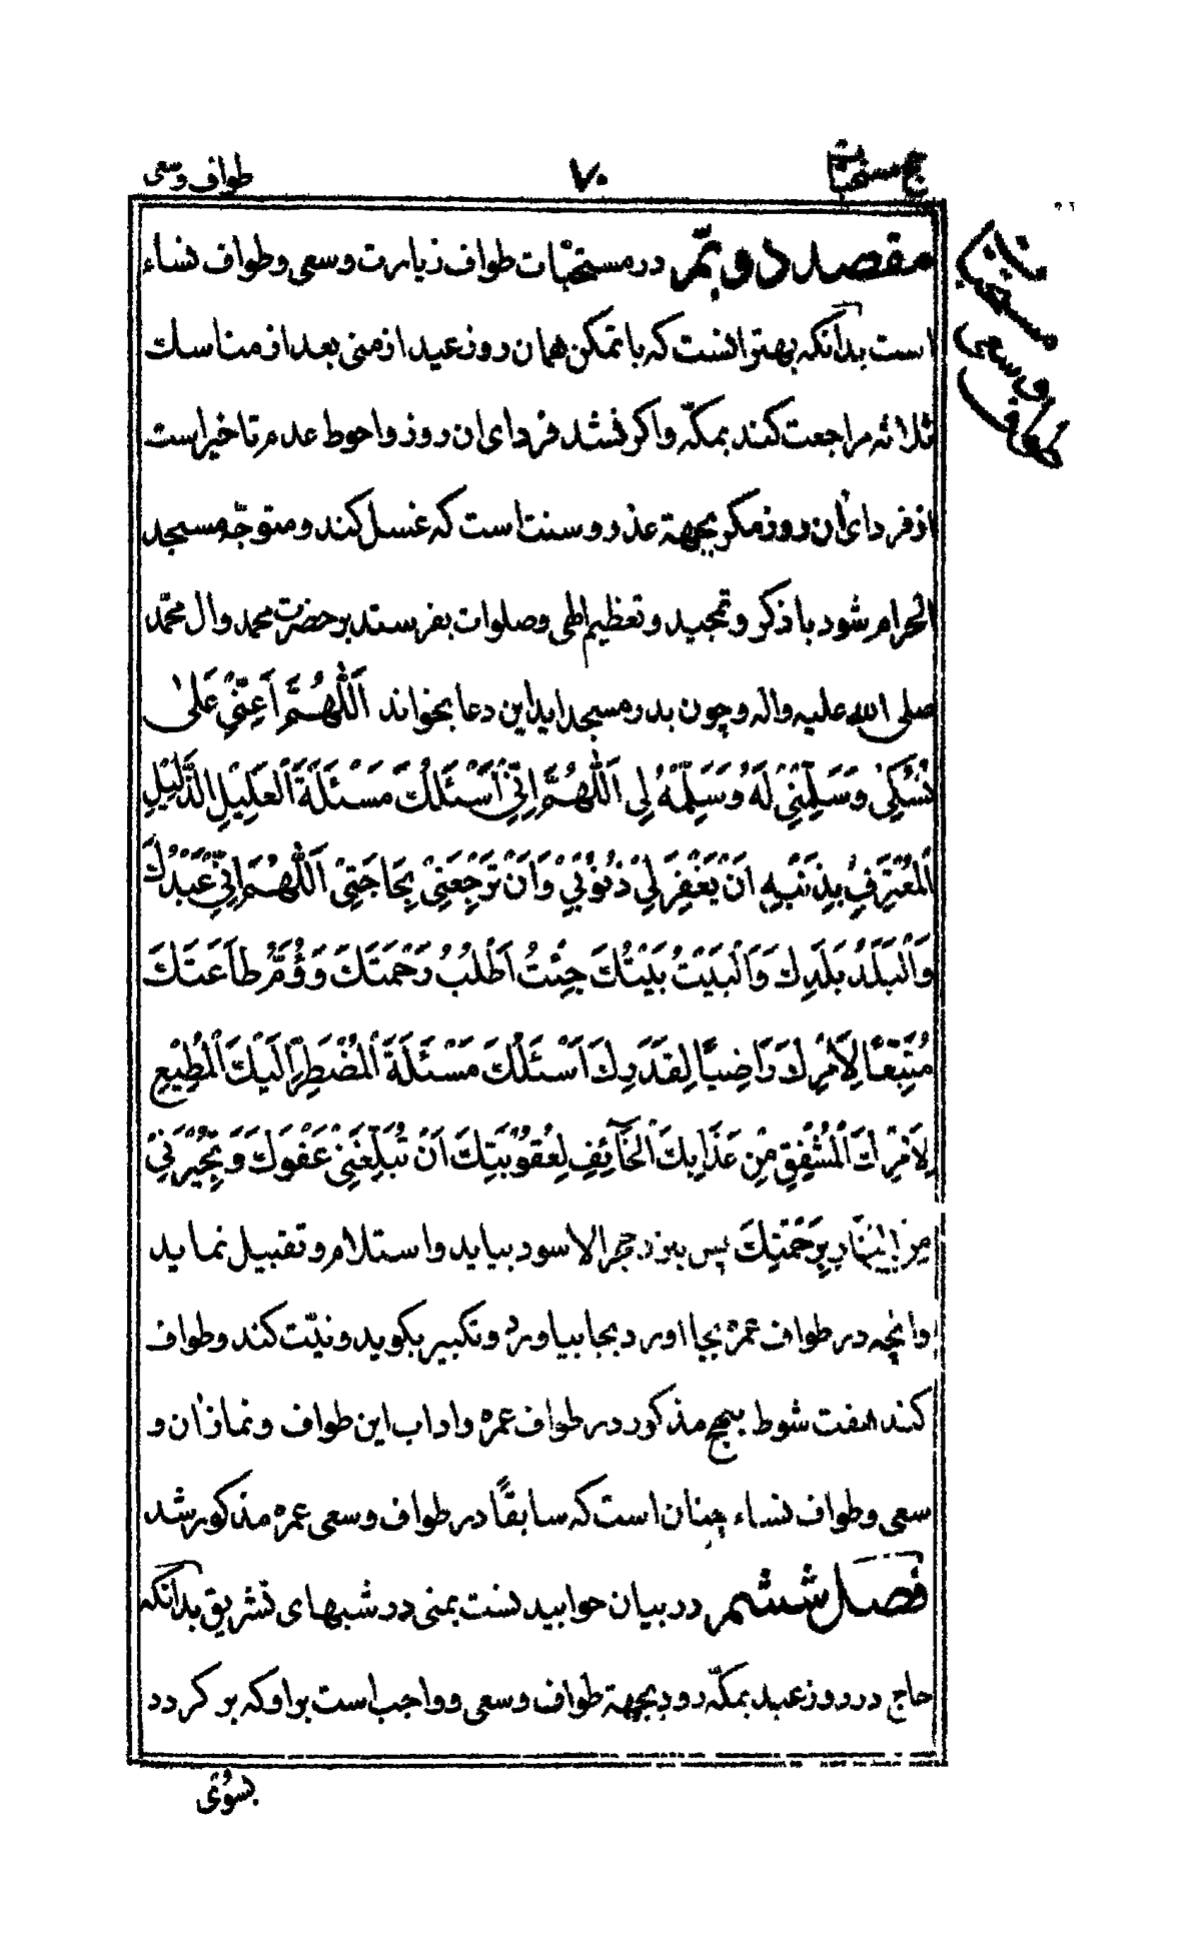 حج مستحبات ۷۰ طواف وسعی
مقصد دویّم در مستحبّات طواف زیارت و سعی و طواف نساء
است بدانکه بهتر انست که با تمکن همان روز عید از منی بعد از مناسك
ثلاثه مراجعت کنند بمکّه و اکر نشد فردای ان روز و احوط عدم تاخیر است
از فردای ان روز مکر بجهة عذر و سنت است که غسل کند و متوجّه مسجد
الحرام شود با ذکر و تمجید و تعظیم الهی و صلوات بفرستد بر حضرت محمد و ال محمّد
صلی الله علیه واله و چون بدر مسجد اید این دعا بخواند اَللّٰهُمَّ اَعِنّیْ عَلیٰ
نُسُکِیْ وَسَلِّمْنِیْ لَهُ وَسَلِّمْهُ لِی اَللّٰهُمَّ اِنّیْ اَسْئَلُكَ مَسْئَلَةَ الْعَلِیْلِ الذَّلِیْلِ
الْمُعْتَرِفِ بِذَنْبِهِ اَنْ یَغْفِرَ لِیْ ذُنُوْبِیْ وَاَنْ تَرْجِعَنِیْ بِحَاجَتِیْ اَللّٰهُمَّ اِنّیْ عَبْدُكَ
وَالْبَلَدُ بَلَدِكَ وَالْبَیْتُ بَیْتُكَ جِئْتُ اَطْلُبُ رَحْمَتَكَ وَؤُمُّ طاَعَتَكَ
مُتَّبِعًا لِاَمْرِكَ رَاضِیًا لِقَدَرِكَ اَسْئَلُكَ مَسْئَلَةَ الْمُضْطَرِّ اِلَیْكَ الْمُطِیْعِ
لِاَمْرِكَ الْمُشْفِقِ مِنْ عَذَابِكَ الْخَآئِفِ لِعُقُوْبَتِكَ اَنْ تُبَلِّغَنِیْ عَفْوَكَ وَتُجِیْرَنِیْ
مِنَ النَّارِ بِرَحْمَتِكَ پس بنزد حجر الاسود بیاید و استلام و تقبیل نماید
وانچه در طواف عمره بجا اورد بجا بیاورد و تکبیر بکوید و نیّت کند و طواف
کند هفت شوط بنهج مذکور در طواف عمره و اداب این طواف و نماز ان و
سعی و طواف نساء چنان است که سابقًا در طواف و سعی عمره مذکور شد
فصل ششم در بیان خوابیدنست بمنی در شبهای تشریق بدانکه
حاج در روز عید بمکّه رود بجهة طواف و سعی و واجب است بر او که بر کردد
بسوُی
مستحبات
طواف وسعی